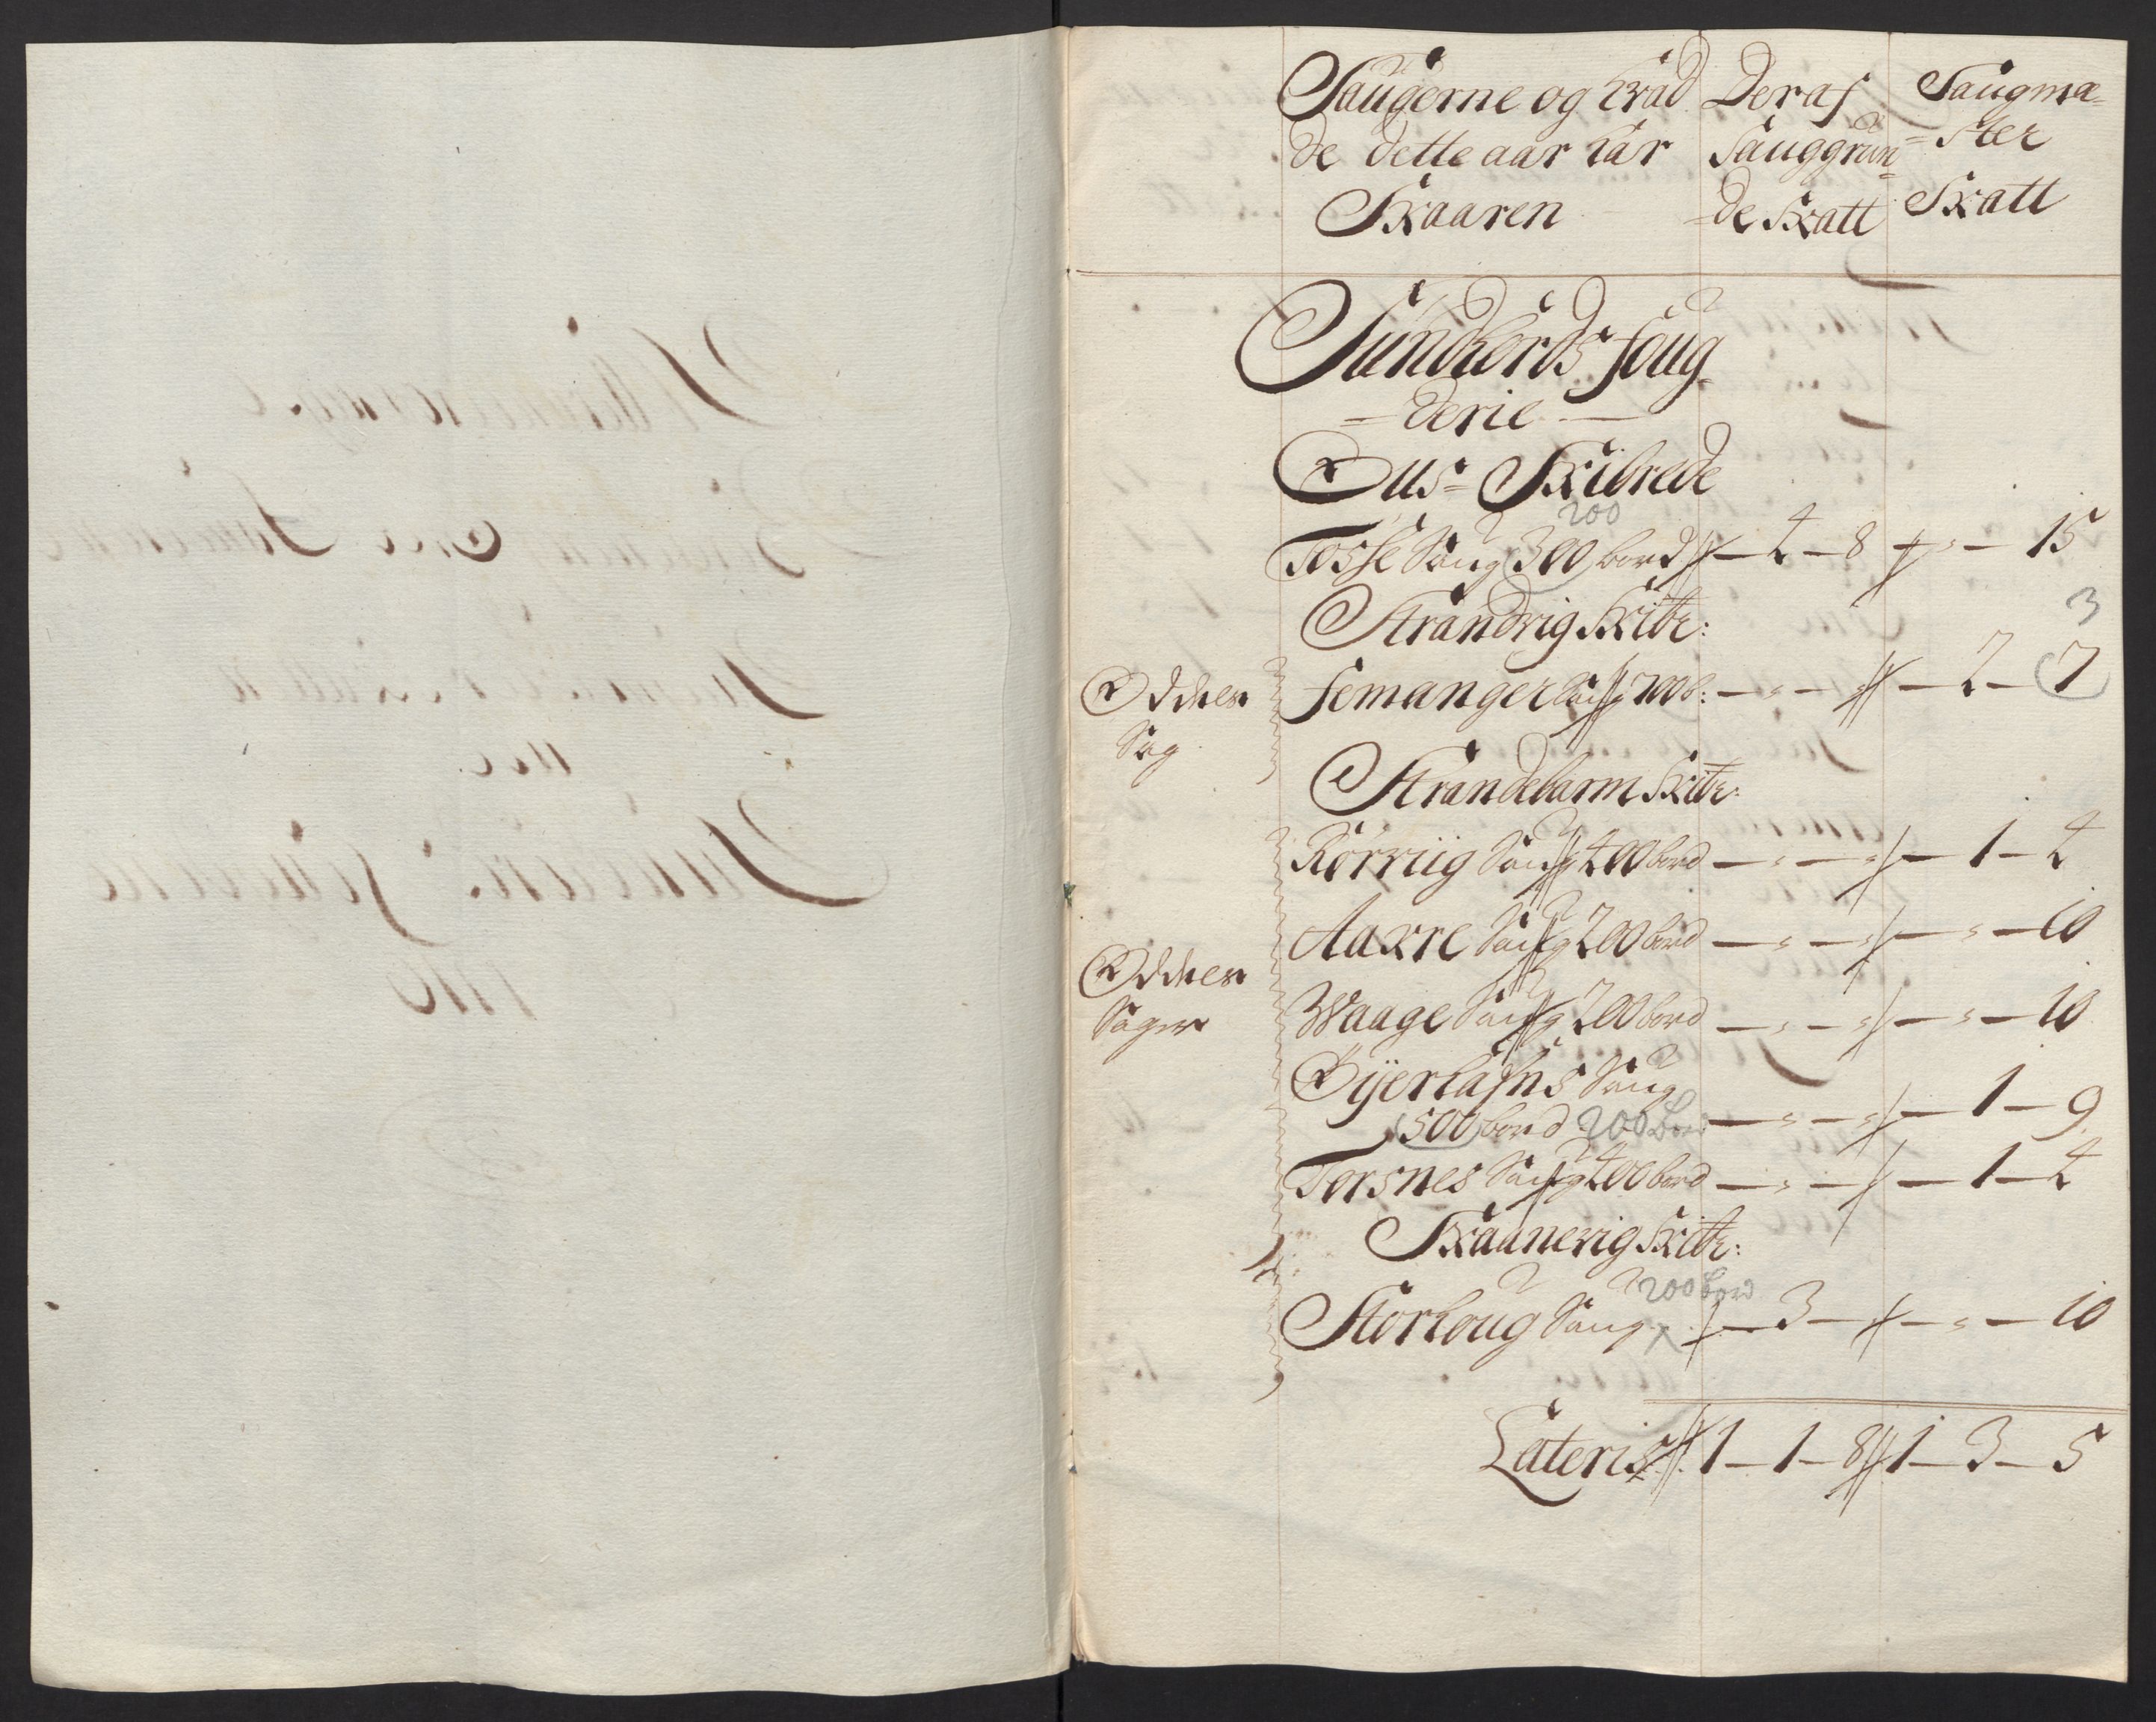 Saugerne og hvad
de dette aar har
Skaaren
Deraf
Sauggrun-
-de Skatt
Saugma-
-ster
Skatt
Sundhords foug-
-derie-
Qus- Skibrede
200
Tosse Saug 300 bord — 4 — 8 — " — 15
Strandvig Skibr:
3
Odeler
Sag
Femanger Saug 700 b: — " — " — 2 — 7
Strandebarm Skibr:
Rørviig Saug 400 bord — " — " — 1 — 4
Aakre Saug 200 bord — " — " — " — 10
Odeler
Sager
Waage Saug 200 bord — " — " — " — 10
Øyerhafns Saug
500 bord 200 Bord — " — " — 1 — 9
Torsnes Saug 400 bord — " — " — 1 — 4
Skaanevig Skibr:
200 bord
Storhoug Saug — 3 — " — 10
Lateris 1 — 1 — 8 1 — 3 — 5